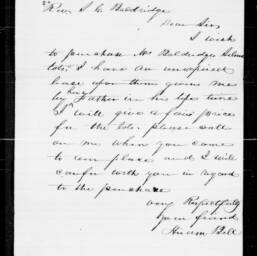 Rev. S. C. Baldridge
Dear Sir,
I wish
to purchase Mr Baldridges Salem
lots, I have an unexpired
lease upon them given me
by his Father in his life time
I will give a fair price
for the lots. please call
on me when you come
to our place and I will
confer with you in regard
to the purchase
very Respectfully
your friend
Hiram Bell